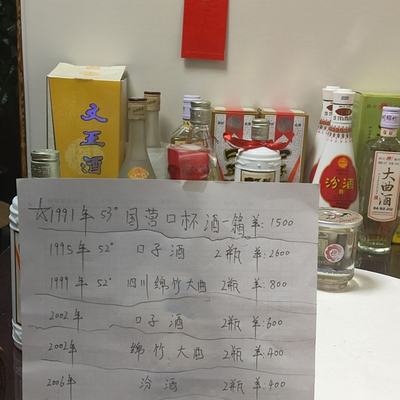 文王酒
汾酒
大曲酒
☆1991年 53° 国营口杯酒一箱 羊:1500
1995年 52° 口子酒 2瓶 羊:2600
1999年 52° 四川绵竹大曲 2瓶 羊:800
2002年 口子酒 2瓶 羊:600
2002年 绵竹大曲 2瓶 羊:400
2006年 汾酒 2瓶 羊:400